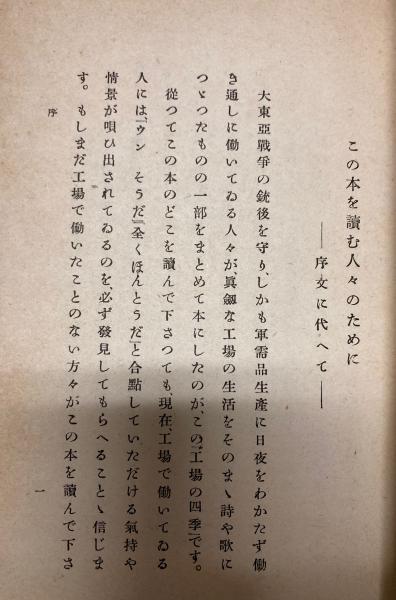 この本を讀む人々のために
――序文に代へて――
大東亞戰爭の銃後を守り、しかも軍需品生產に日夜をわかたず働
き通しに働いてゐる人々が、眞劔な工場の生活をそのまゝ詩や歌に
つゞつたものの一部をまとめて本にしたのが、この「工場の四季」です。
從つてこの本のどこを讀んで下さつても、現在、工場で働いてゐる
人には、「ウン　そうだ」「全くほんとうだ」と合點していただける氣持や
情景が唄ひ出されてゐるのを、必ず發見してもらへることゝ信じま
す。もしまだ工場で働いたことのない方々がこの本を讀んで下さ
序
一